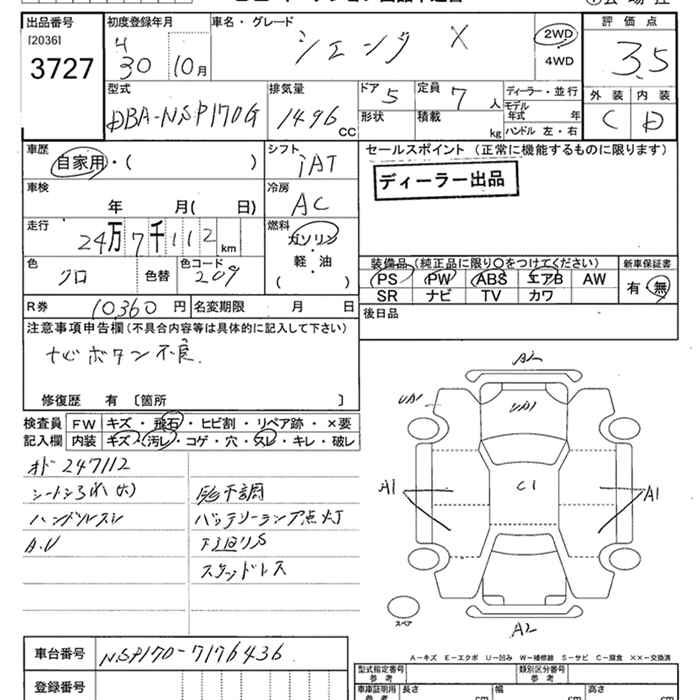 出品番号
[2036]
3727
初度登録年月
H
30 10月
車名・グレード
シエンタ X
2WD
4WD
評価点
3.5
外装 内装
C D
型式
DBA-NSP170G
排気量
1496 CC
ドア 5
形状
定員 7 人
積載 kg
ディーラー・並行
モデル
年式 年
ハンドル 左・右
車歴
自家用・( )
シフト
IAT
セールスポイント (正常に機能するものに限ります)
ディーラー出品
車検
年 月( 日)
冷房
AC
走行
24万7千112 km
燃料
ガソリン
軽・油
( )
色
クロ
色替
色コード
209
装備品(純正品に限り○をつけてください)
PS PW ABS エアB AW
SR ナビ TV カワ
新車保証書
有・無
R券 10,360 円
名変期限 月 日
後日品
注意事項申告欄(不具合内容等は具体的に記入して下さい)
ナビボタン不良.
修復歴 有 〔箇所 〕
検査員
記入欄
FW キズ・飛石・ヒビ割・リペア跡・×要
内装 キズ・汚レ・コゲ・穴・スレ・キレ・破レ
オド 247112
ハンドルスレ
A.U
バッテリーランプ点灯
下廻りS
スタッドレス
A2
UA1
UA1
A1
C1
A1
A2
スペア
車台番号 NSP170-7176436
登録番号
A-キズ E-エクボ U-凹み W-補修跡 S-サビ C-腐食 ××-交換済
型式指定番号
参考
類別区分番号
参考
車庫証明用
参考
長さ cm
幅 cm
高さ cm